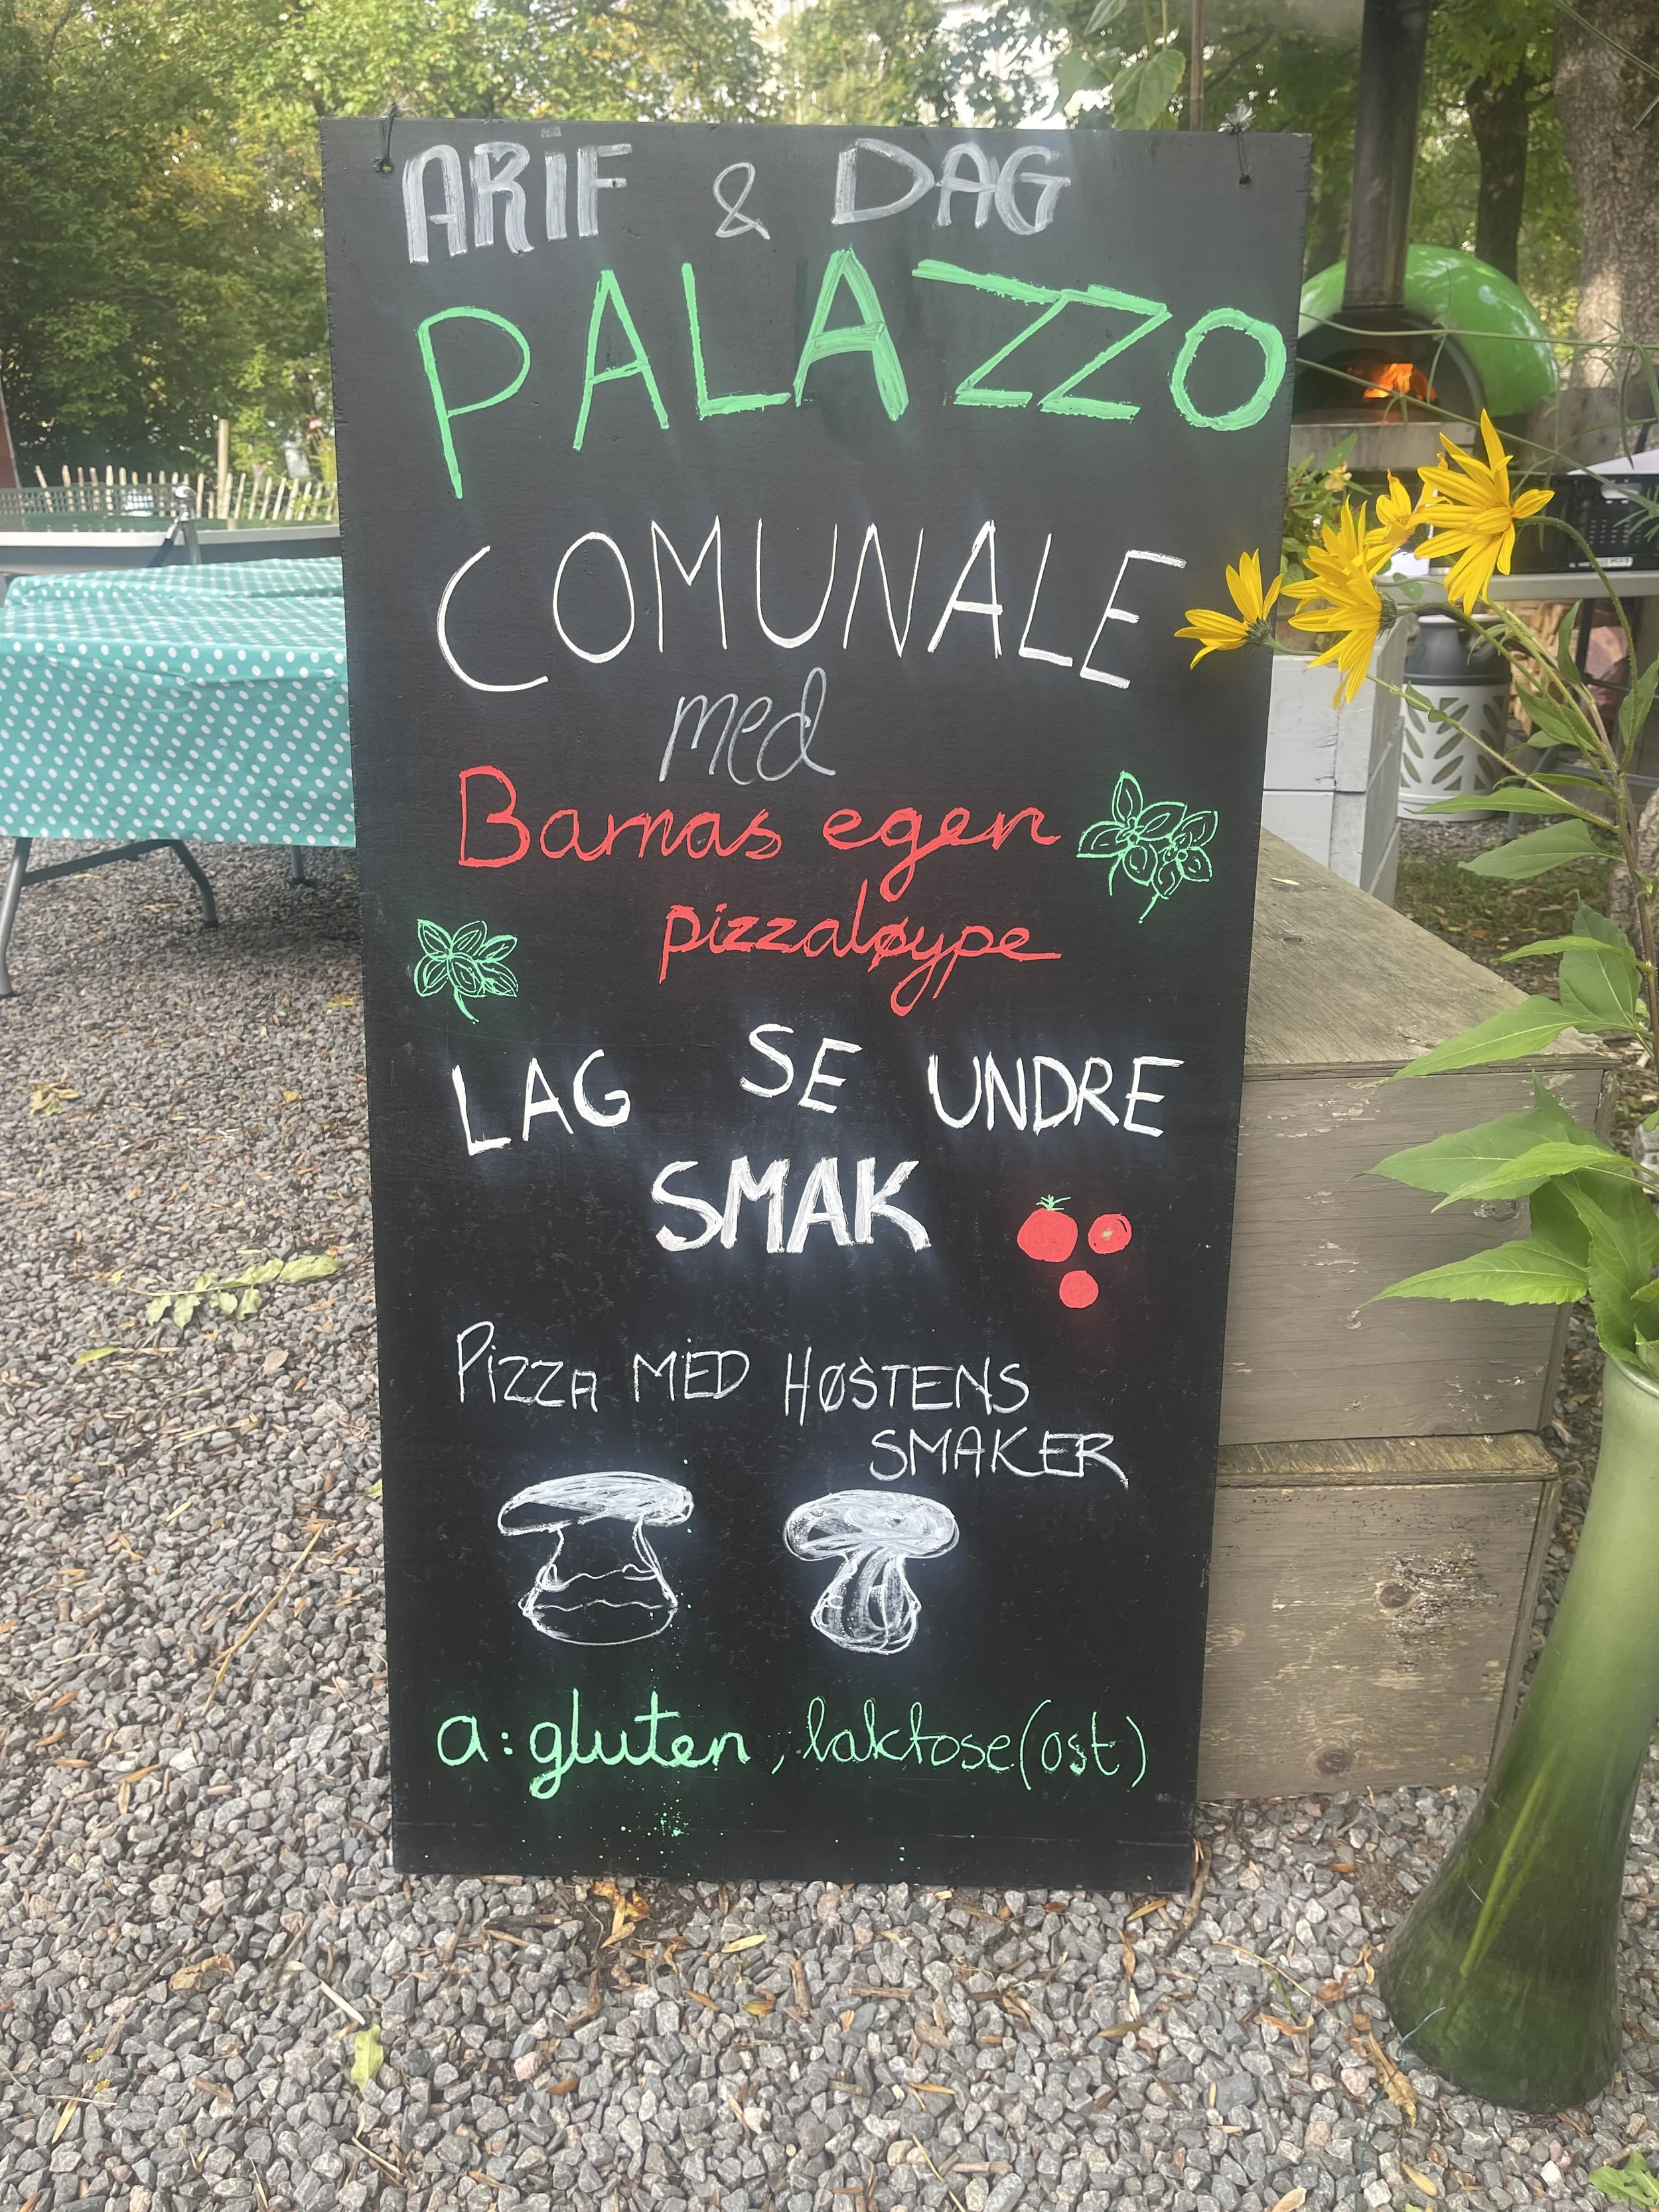 ARIF & DAG
PALAZZO
COMUNALE
med
Barnas egen
pizzaløype
LAG SE UNDRE
SMAK
PIZZA MED HØSTENS
SMAKER
a: gluten, laktose (ost)